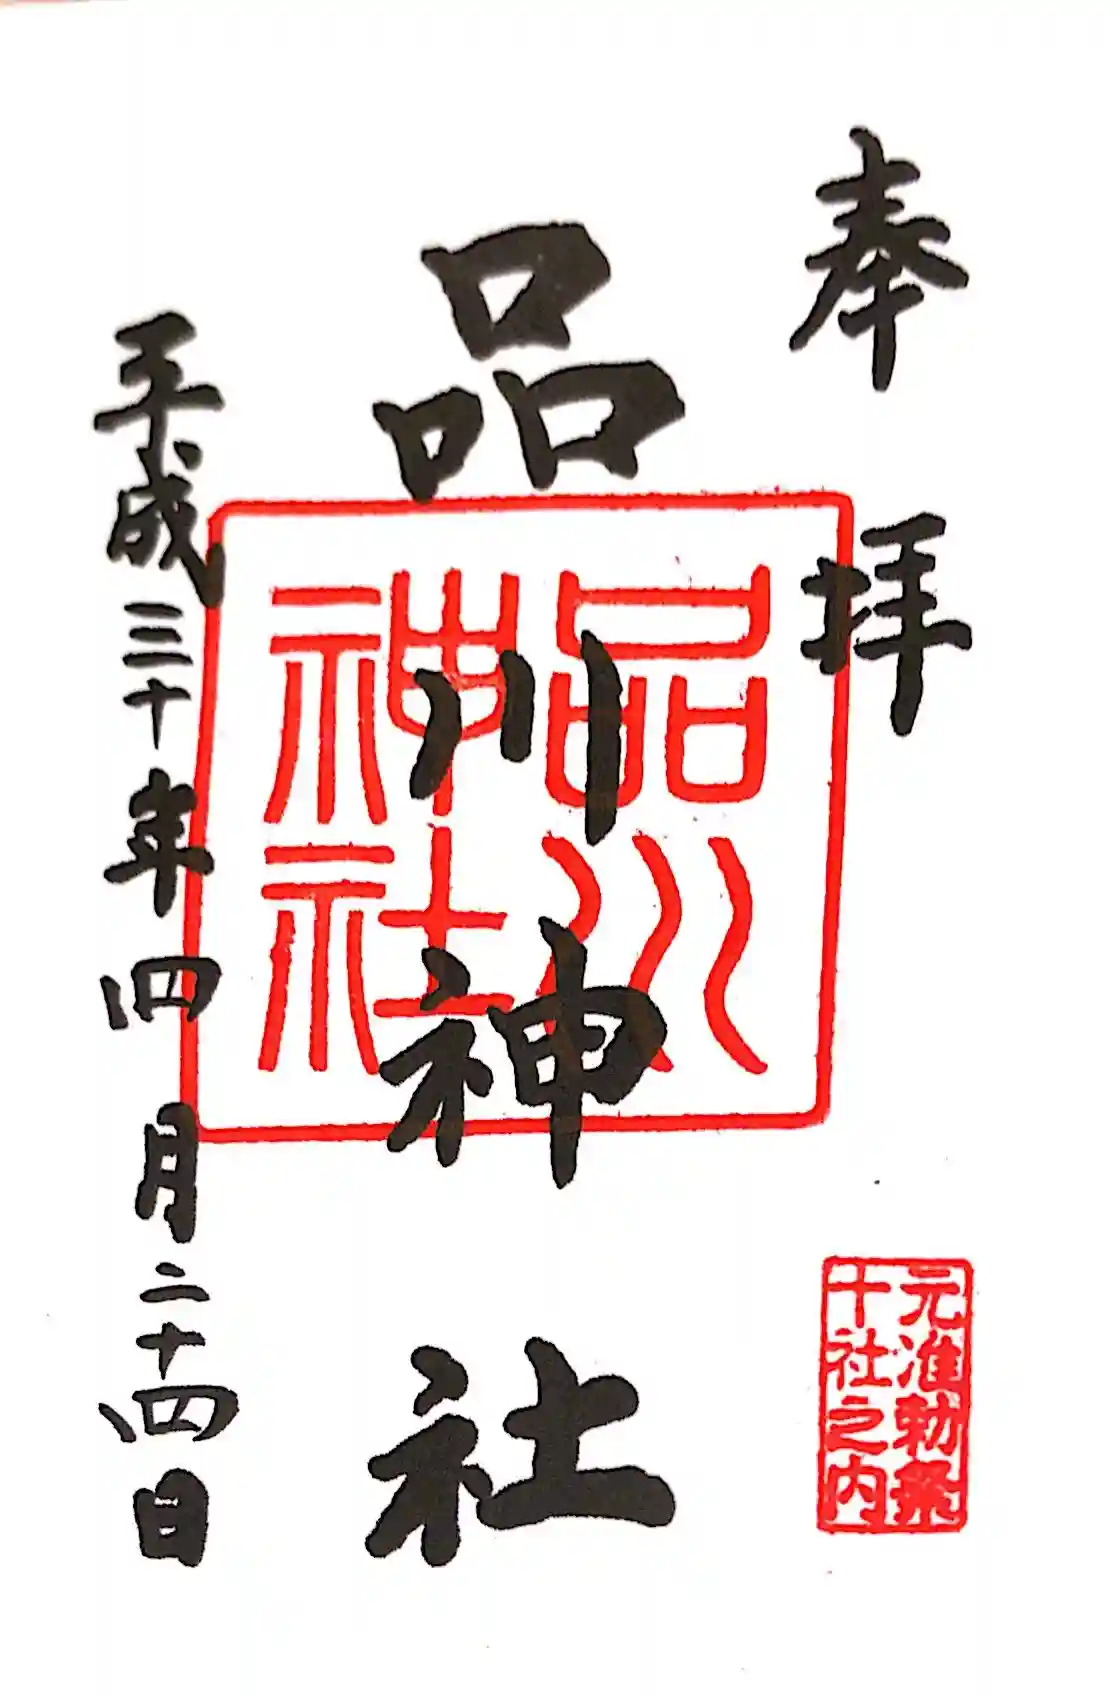 奉拝
元准勅祭
十社之内
品川神社
品川
神社
平成三十年四月二十四日